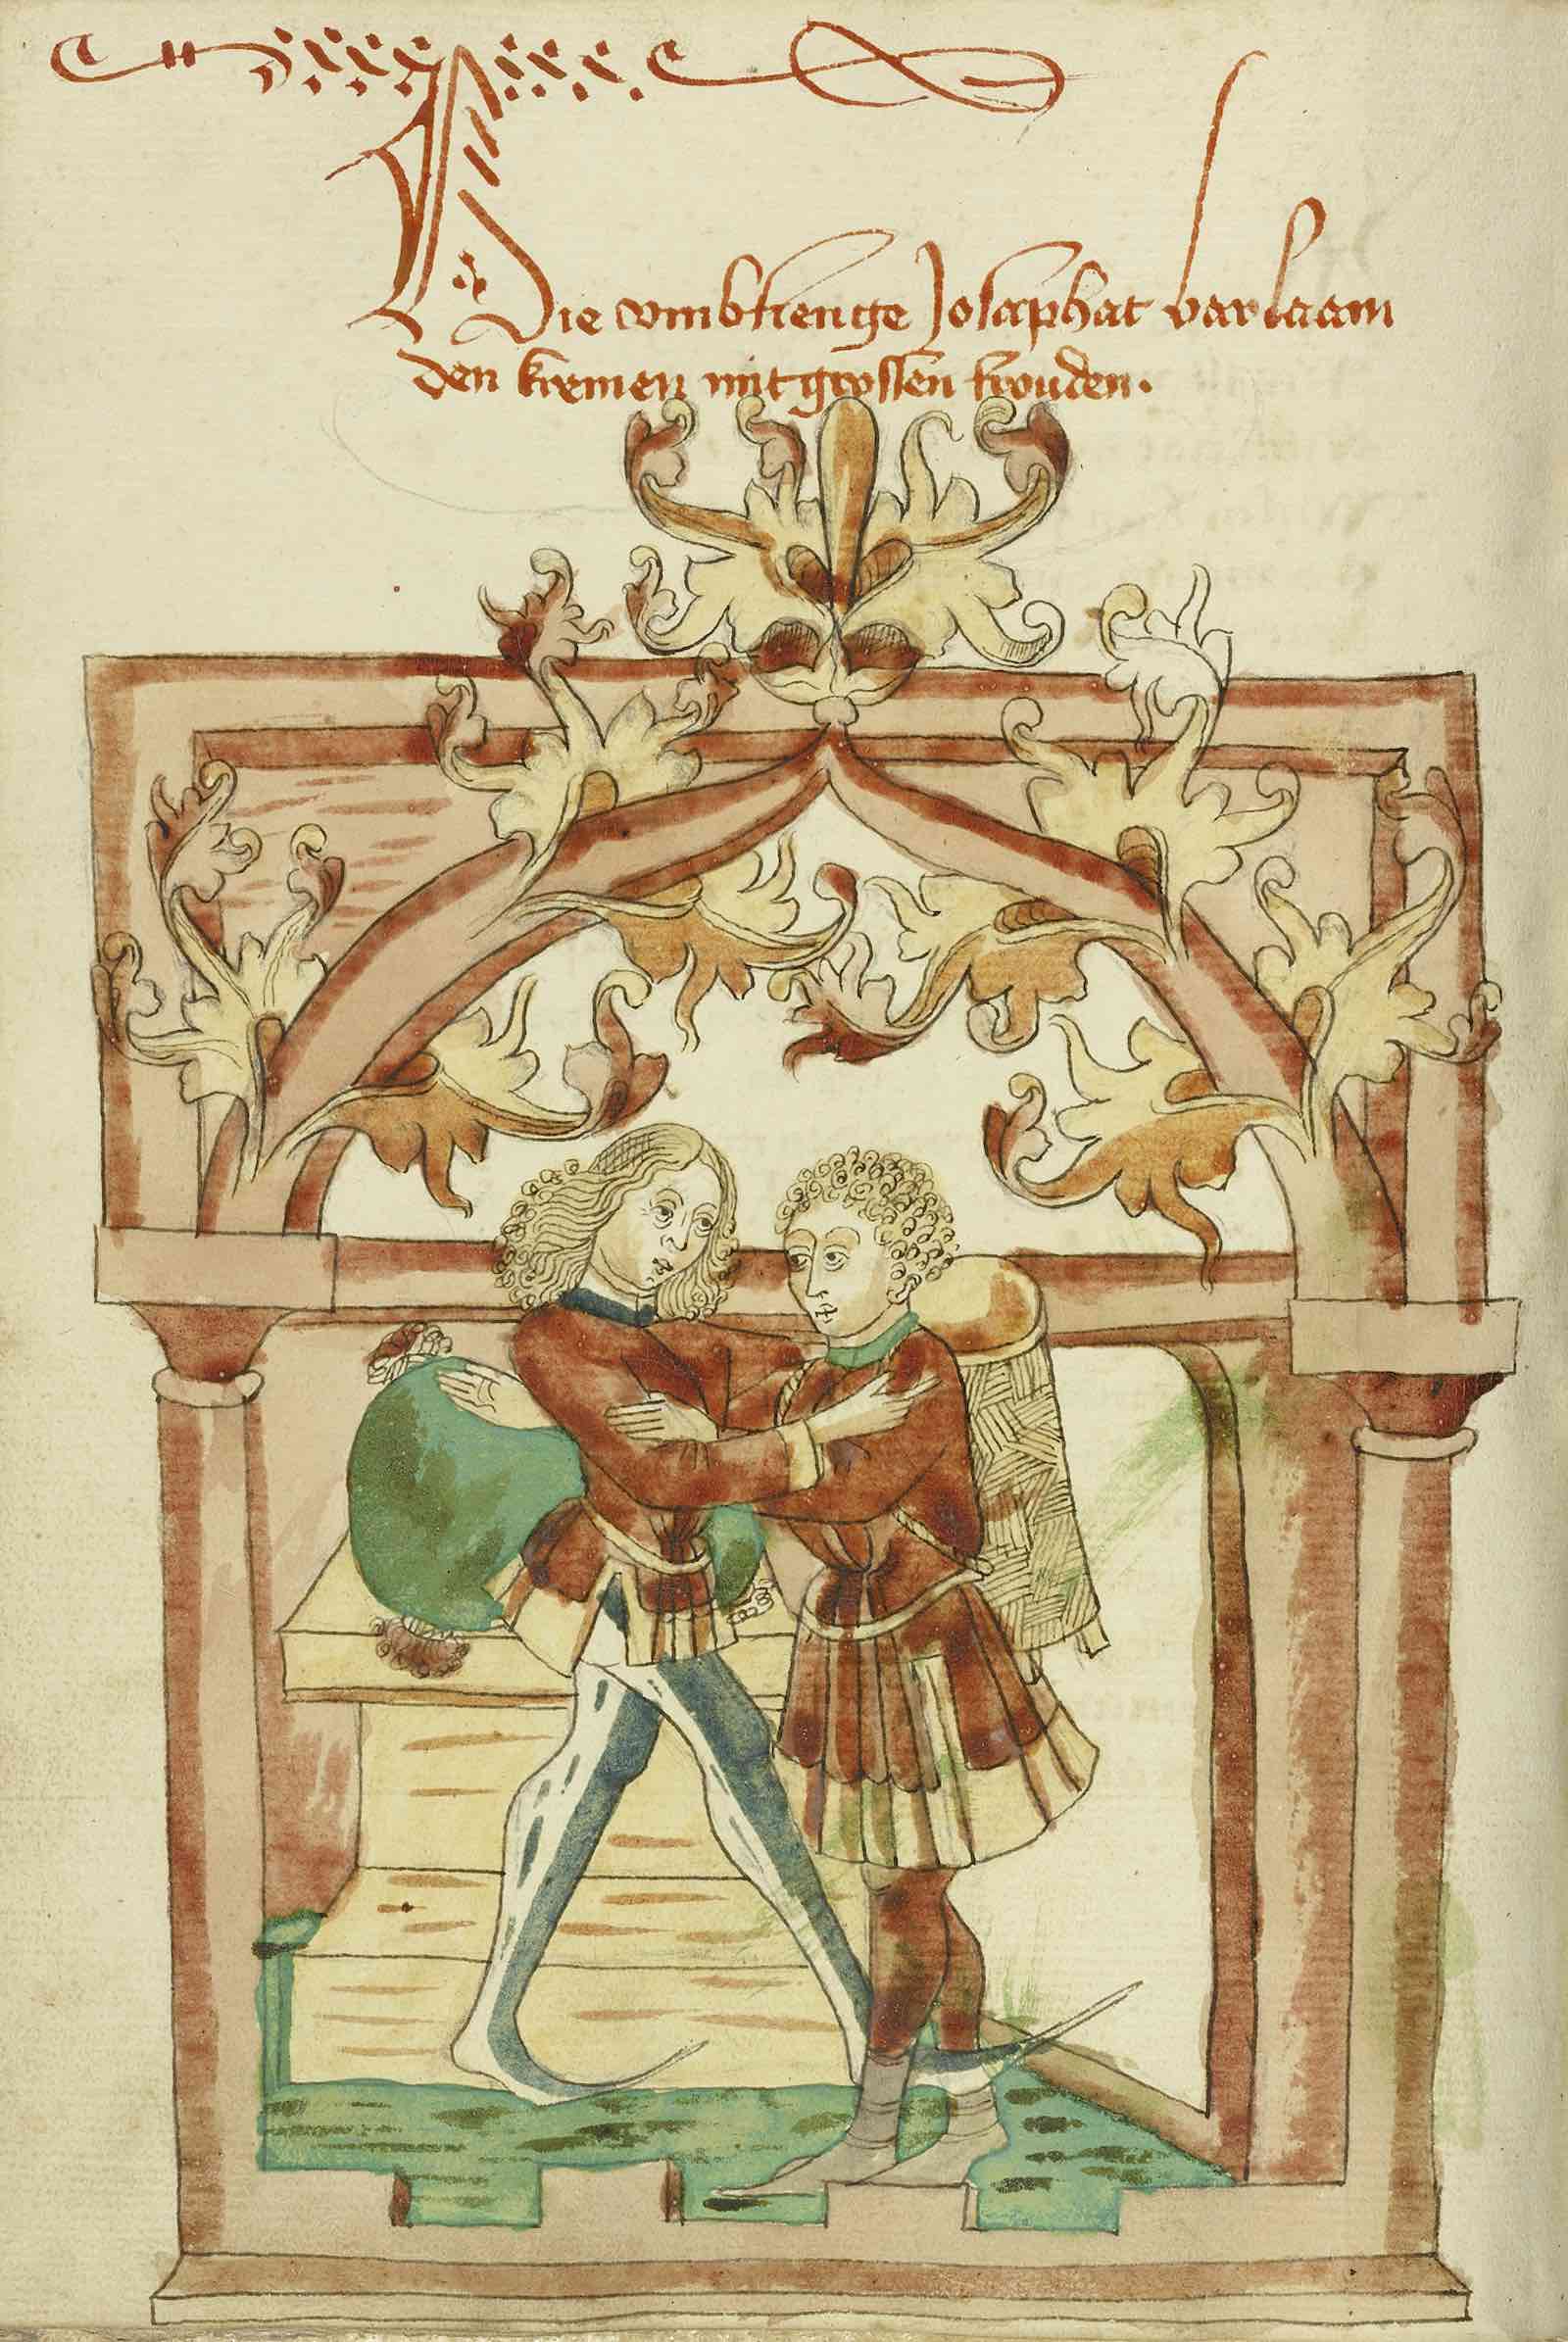 Die vmbfienge Josaphat barlaam
den kremer mit grossen frouden.